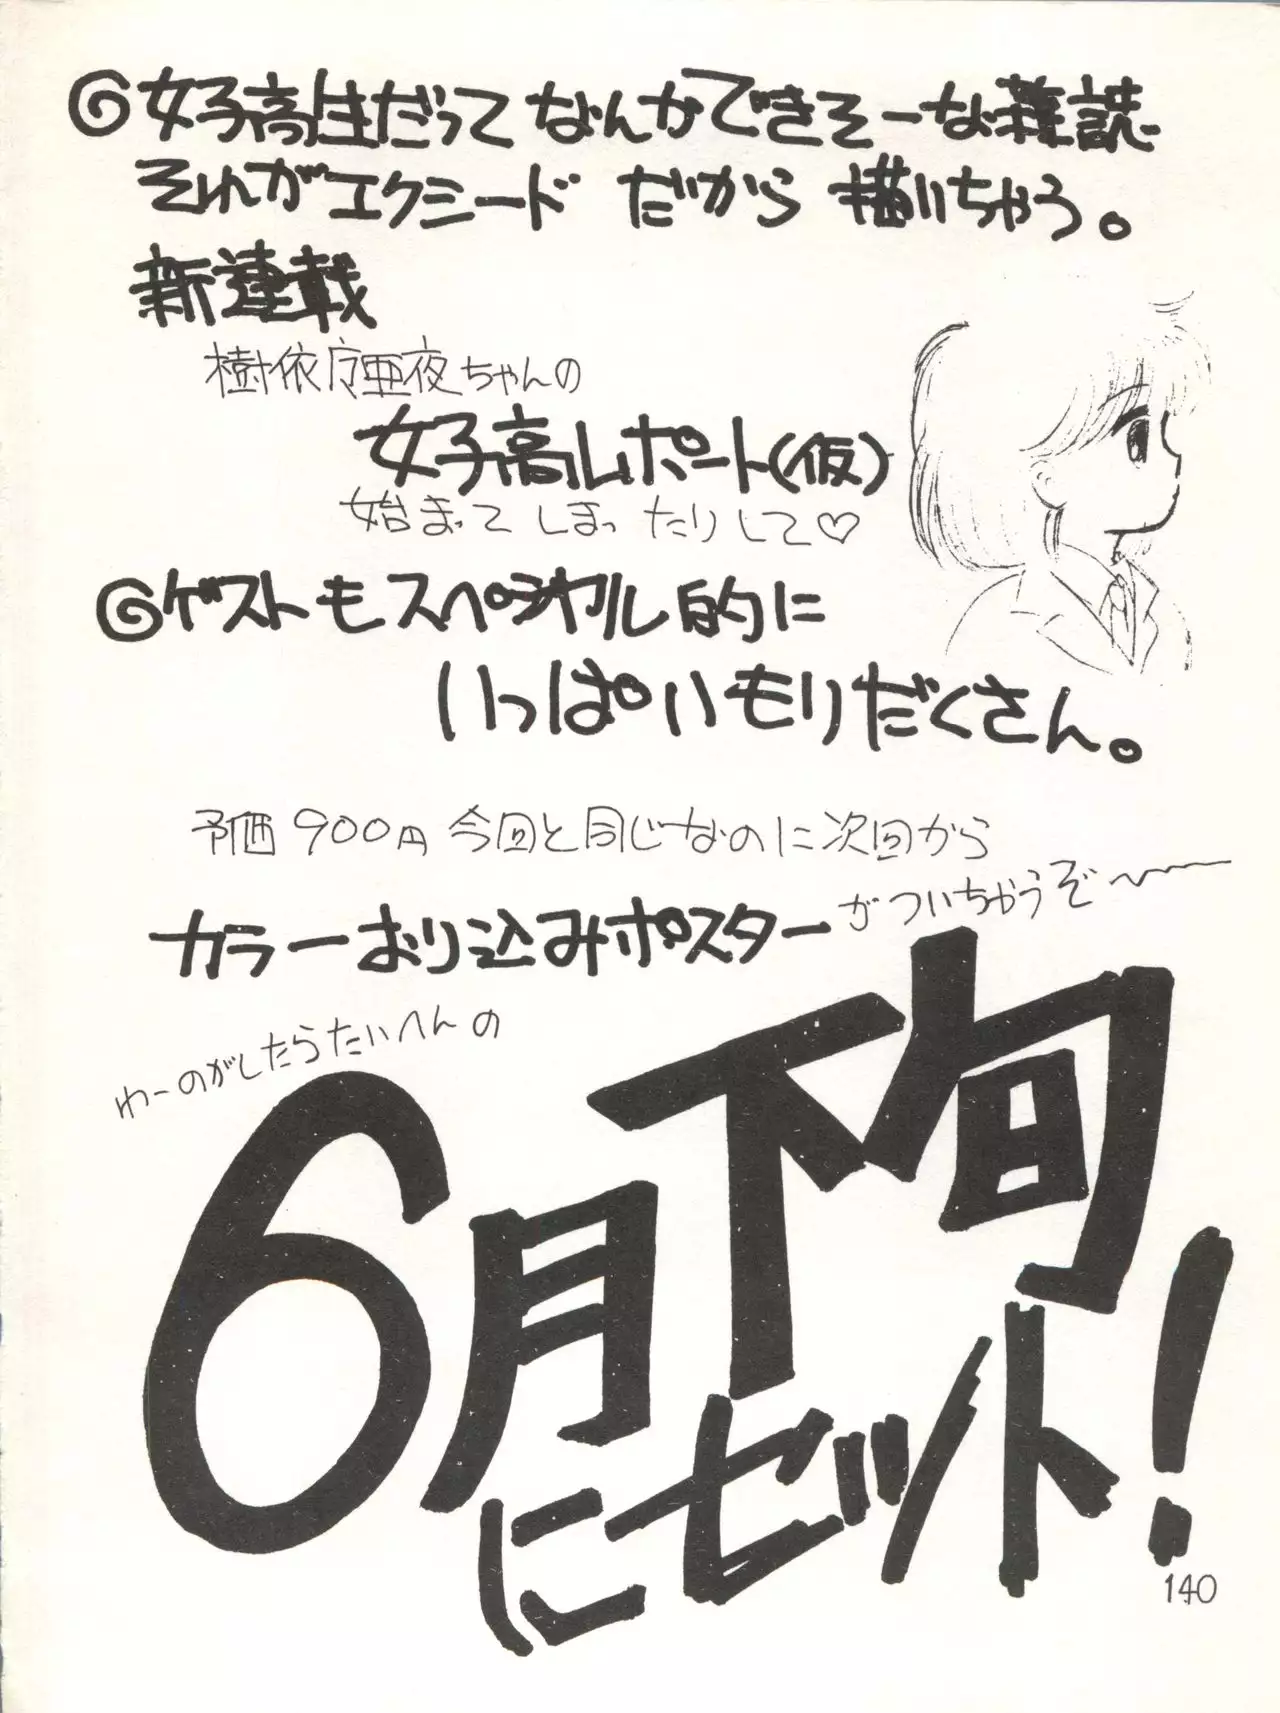 ◎女子高生だってなんかできそーな雑誌
それがエクシード だから 描いちゃう。
新連載
樹依 亜夜ちゃんの
女子高レポート(仮)
始まってしまったりして♡
◎ゲストもスペシャル的に
いっぱいもりだくさん。
予価900円 今回と同じなのに次回から
カラーおり込みポスターがついちゃうぞ〜
わーのがしたらたいへんの
6月下旬
にセット!
140